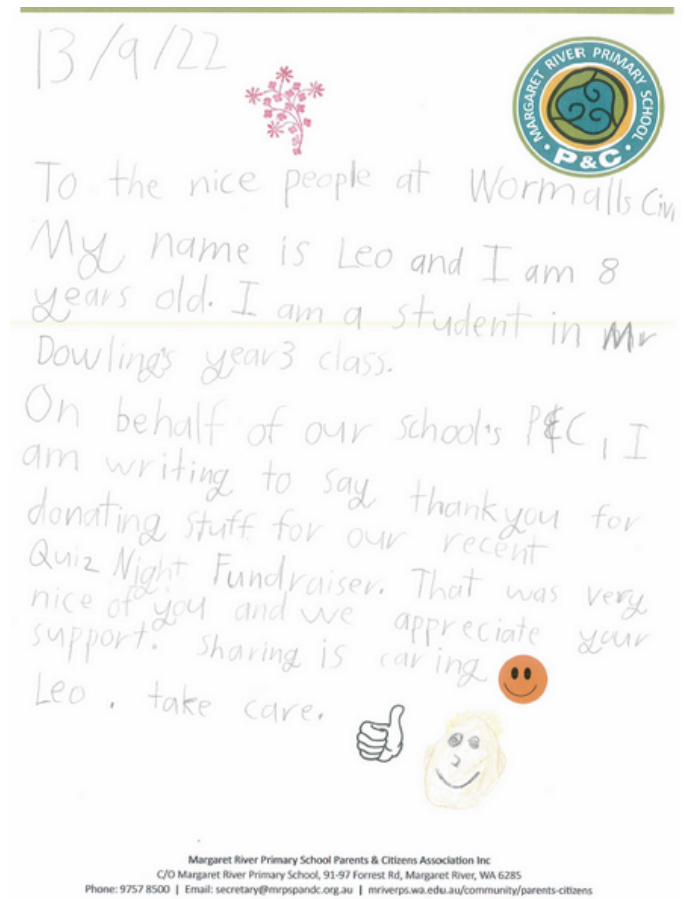 13/9/22
MARGARET RIVER PRIMARY SCHOOL
P&C
To the nice people at Wormalls Civi
My name is Leo and I am 8
years old. I am a student in Mr
Dowling's year 3 class.
On behalf of our school's P&C, I
am writing to say thankyou for
donating stuff for our recent
Quiz Night Fundraiser. That was very
nice of you and we appreciate your
support. Sharing is caring
Leo. take care.
Margaret River Primary School Parents & Citizens Association Inc
C/O Margaret River Primary School, 91-97 Forrest Rd, Margaret River, WA 6285
Phone: 9757 8500 | Email: secretary@mrpspandc.org.au | mriverps.wa.edu.au/community/parents-citizens